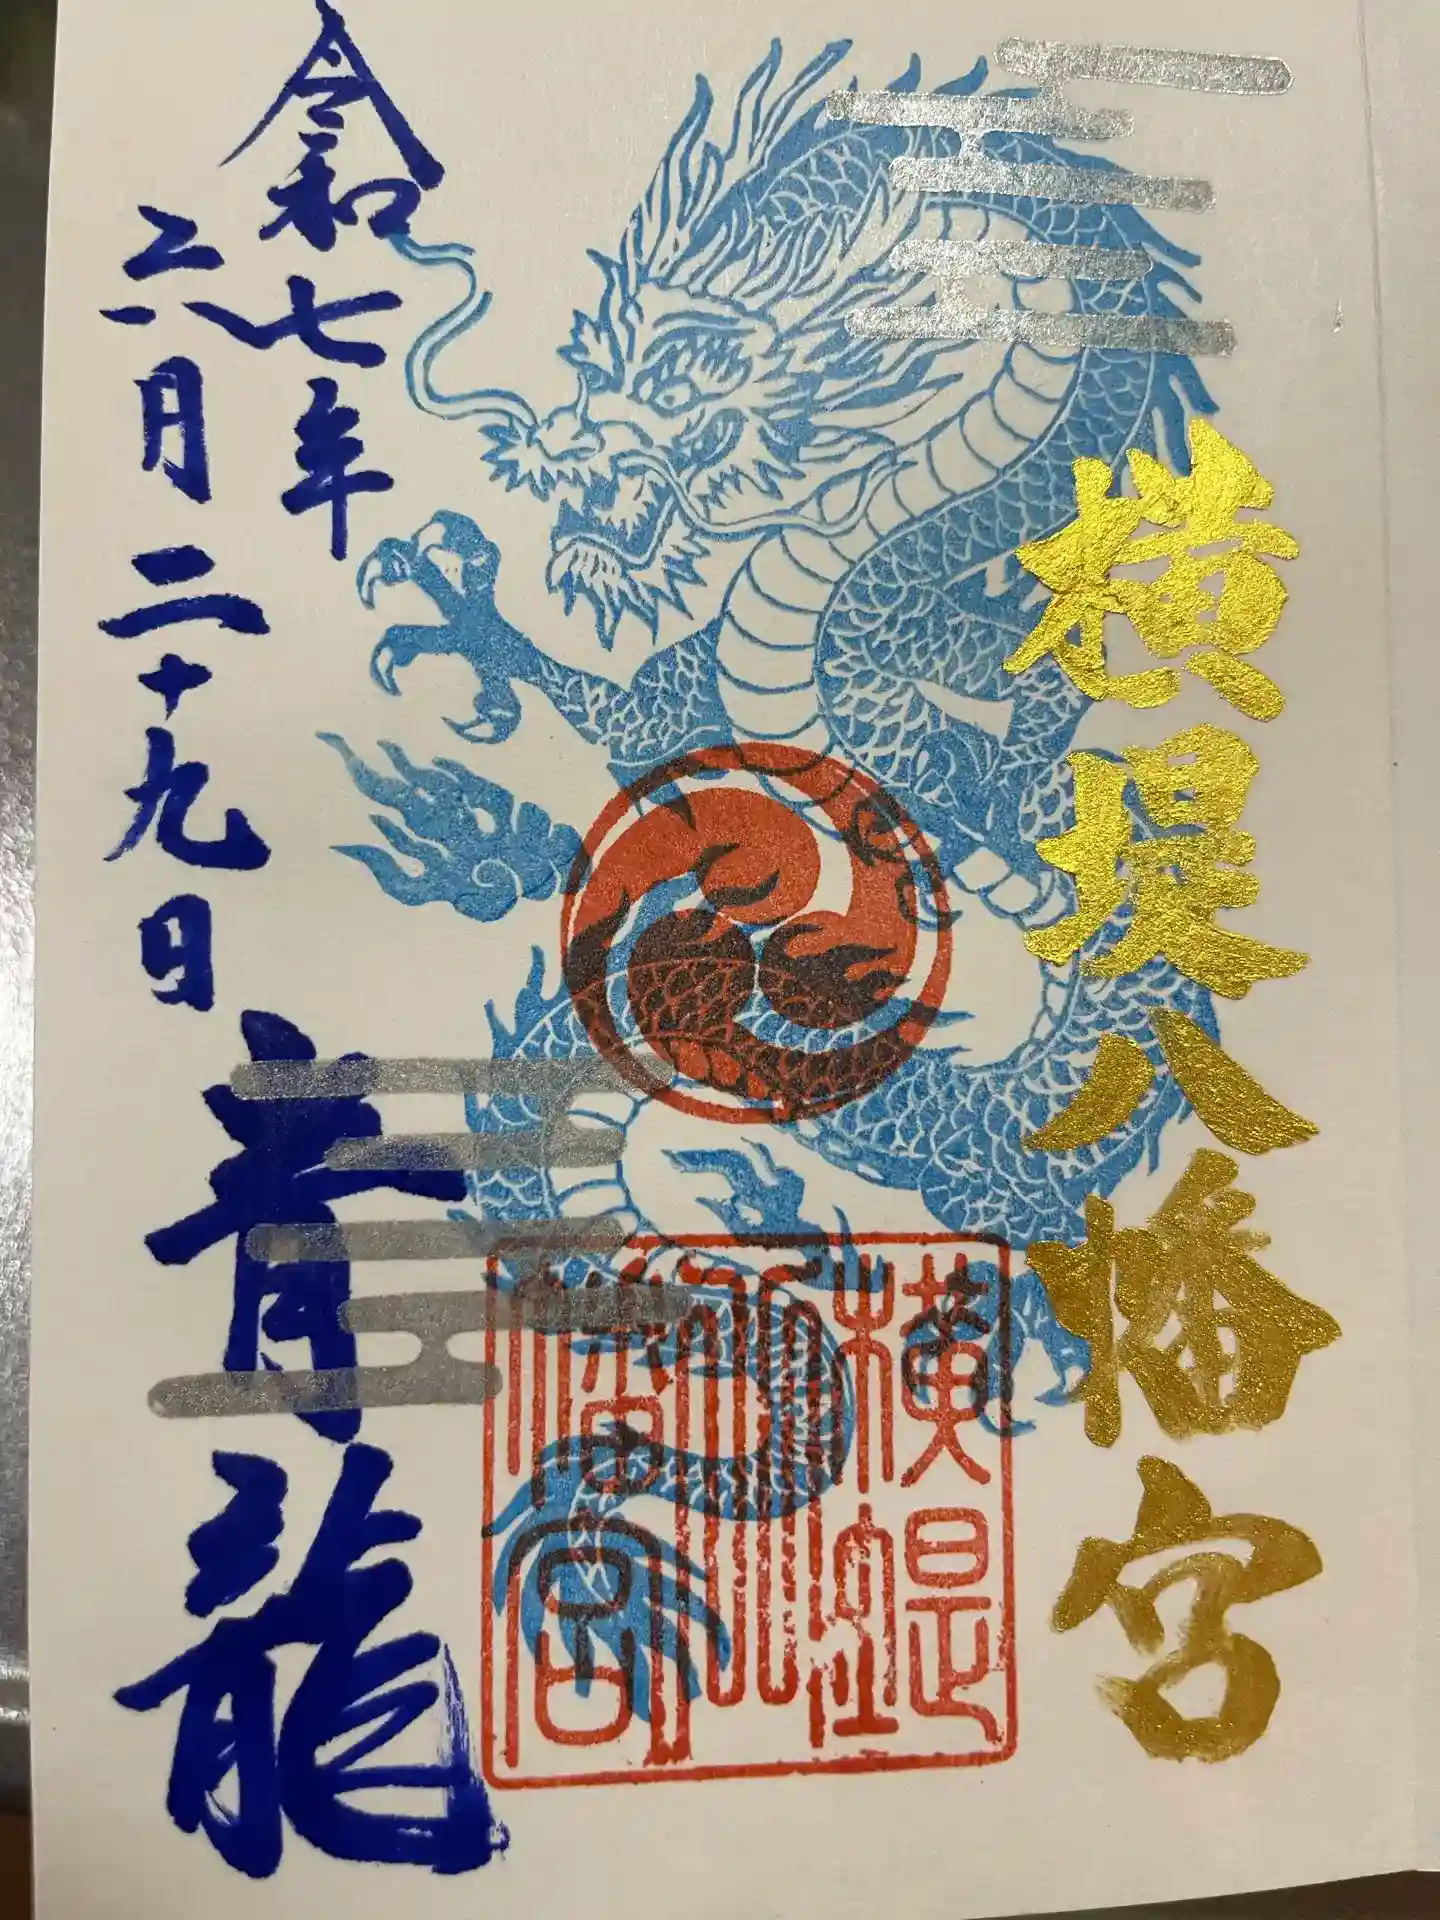 横堤八幡宮
横堤
八
幡宮
令和七年
六月二十九日
青龍